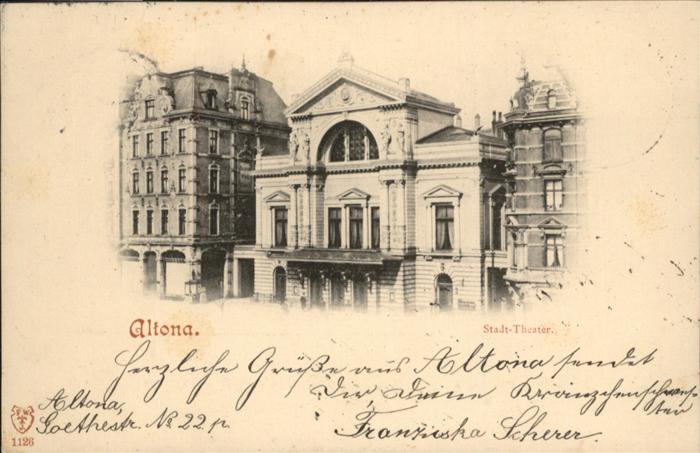 Altona.
Stadt-Theater.
Herzliche Grüße aus Altona sendet
Dir, Deine Kränzchenschwes-
ter
Franziska Scherer.
Altona,
Goethestr. No 22 p.
1126